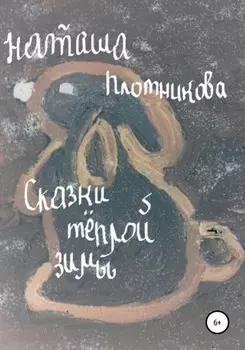 наташа
Плотникова
Сказки
тёплой
5
зимы
6+